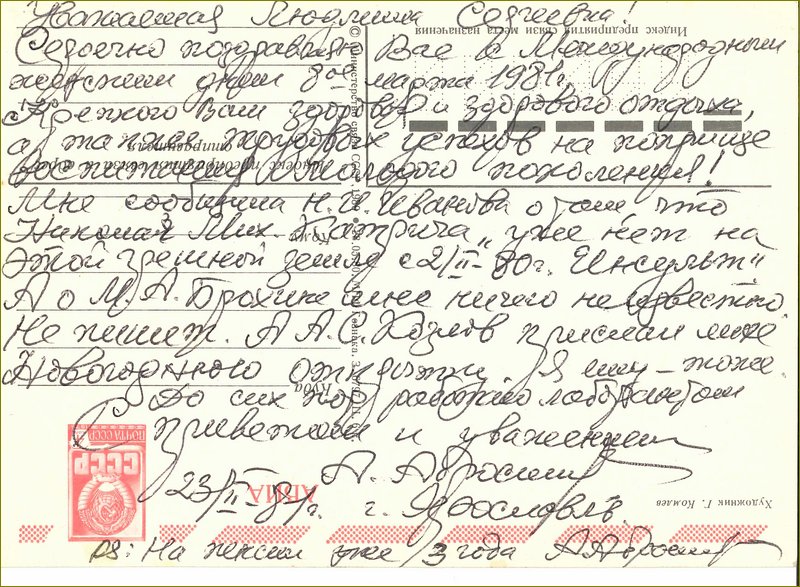 Уважаемая Людмила Сергеевна!
Сердечно поздравляю Вас с Международным
женским днём 8ое марта 1981г.
Крепкого Вам здоровья и здорового отдыха,
а также трудовых успехов на поприще
воспитания молодого поколения!
Мне сообщила Н.И. Иванова о том, что
Николая Мих. уже нет на
этой грешной земле с 2/II-80г. Инсульт"
А о М.А. мне ничего не известно.
Не пишет. А А.С. Козлов прислал мне
Новогоднюю открытку, я ему - тоже
До сих пор работаю лаборантом
С приветом и уважением
А. Абросимов
23/II-81г. г. Ярославль
PS: На пенсии уже 3 года
Индекс предприятия связи места назначения
© Министерство связи СССР
Индекс предприятия связи и адрес
отправителя
Кому
Куда
АВИА
ПОЧТА СССР
СССР
Художник Г. Комлев